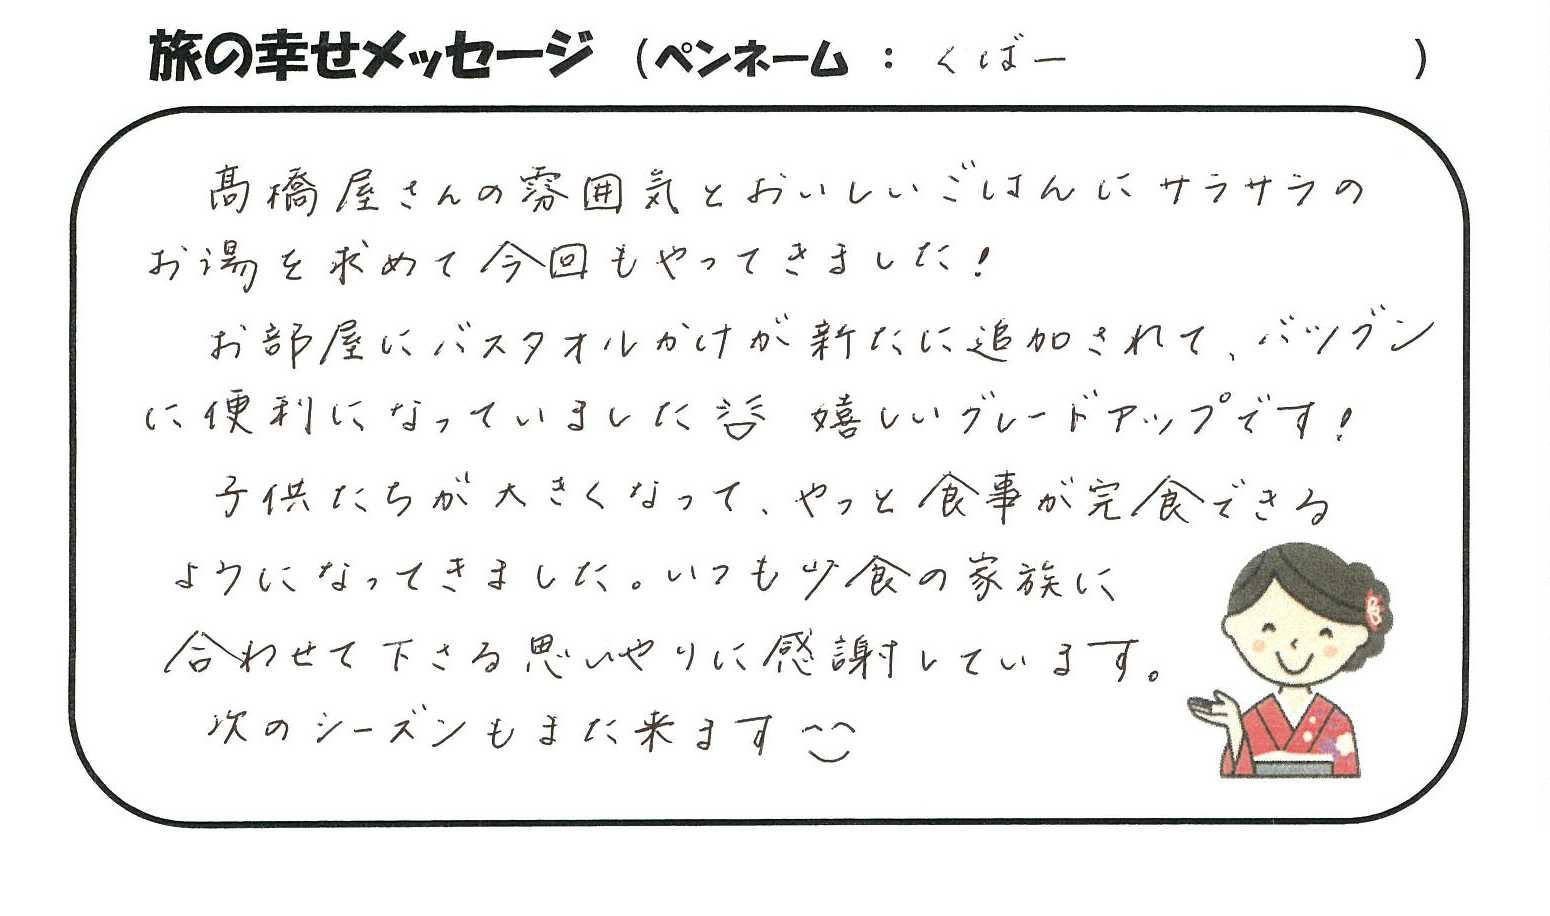 旅の幸せメッセージ（ペンネーム：くばー）
髙橋屋さんの雰囲気とおいしいごはんにサラサラの
お湯を求めて今回もやってきました！
お部屋にバスタオルかけが新たに追加されて、バツグン
に便利になっていました 嬉しいグレードアップです！
子供たちが大きくなって、やっと食事が完食できる
ようになってきました。いつも少食の家族に
合わせて下さる思いやりに感謝しています。
次のシーズンもまた来ます